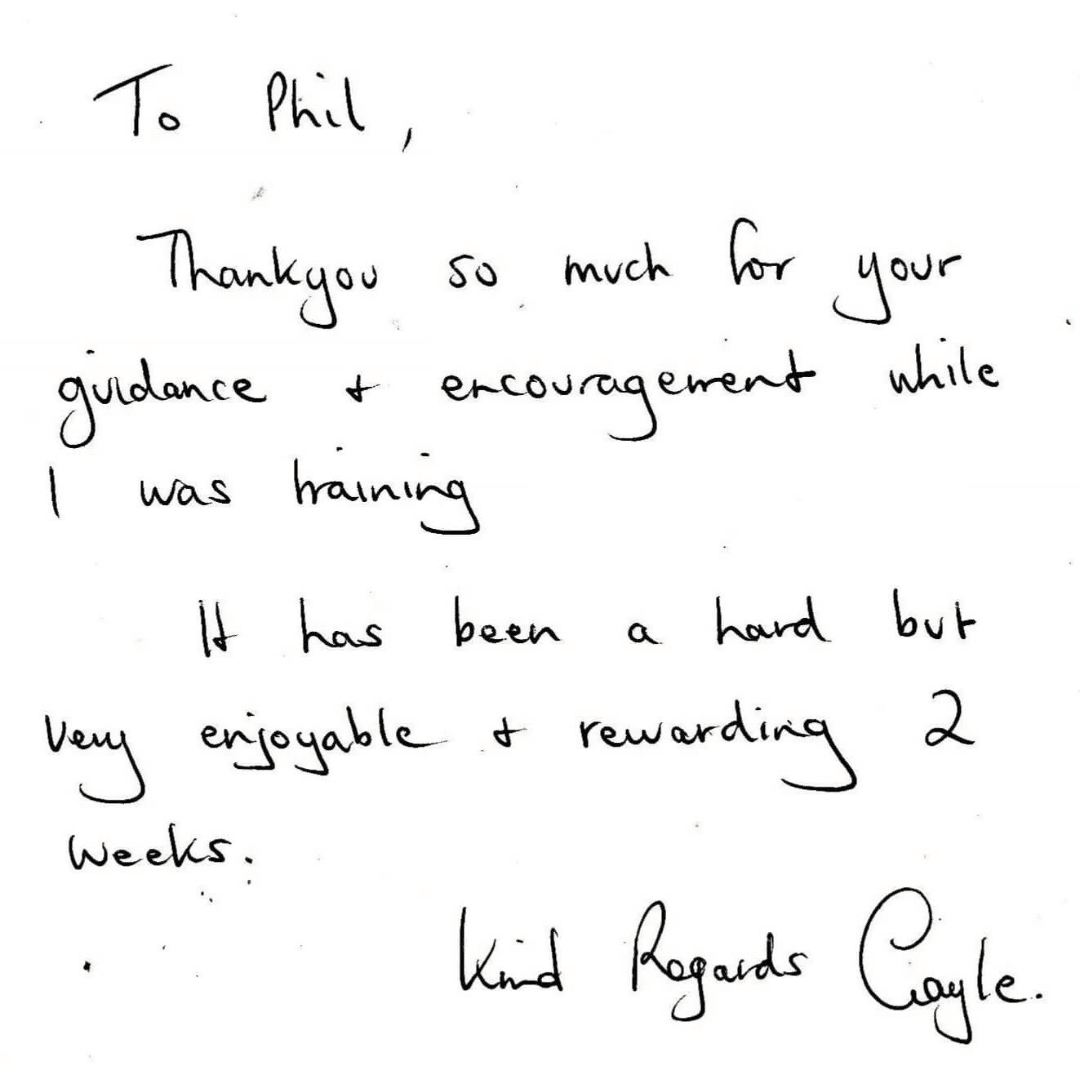 To Phil,
Thankyou so much for your
guidance + encouragement while
I was training
It has been a hard but
very enjoyable + rewarding 2
weeks.
Kind Regards Gayle.